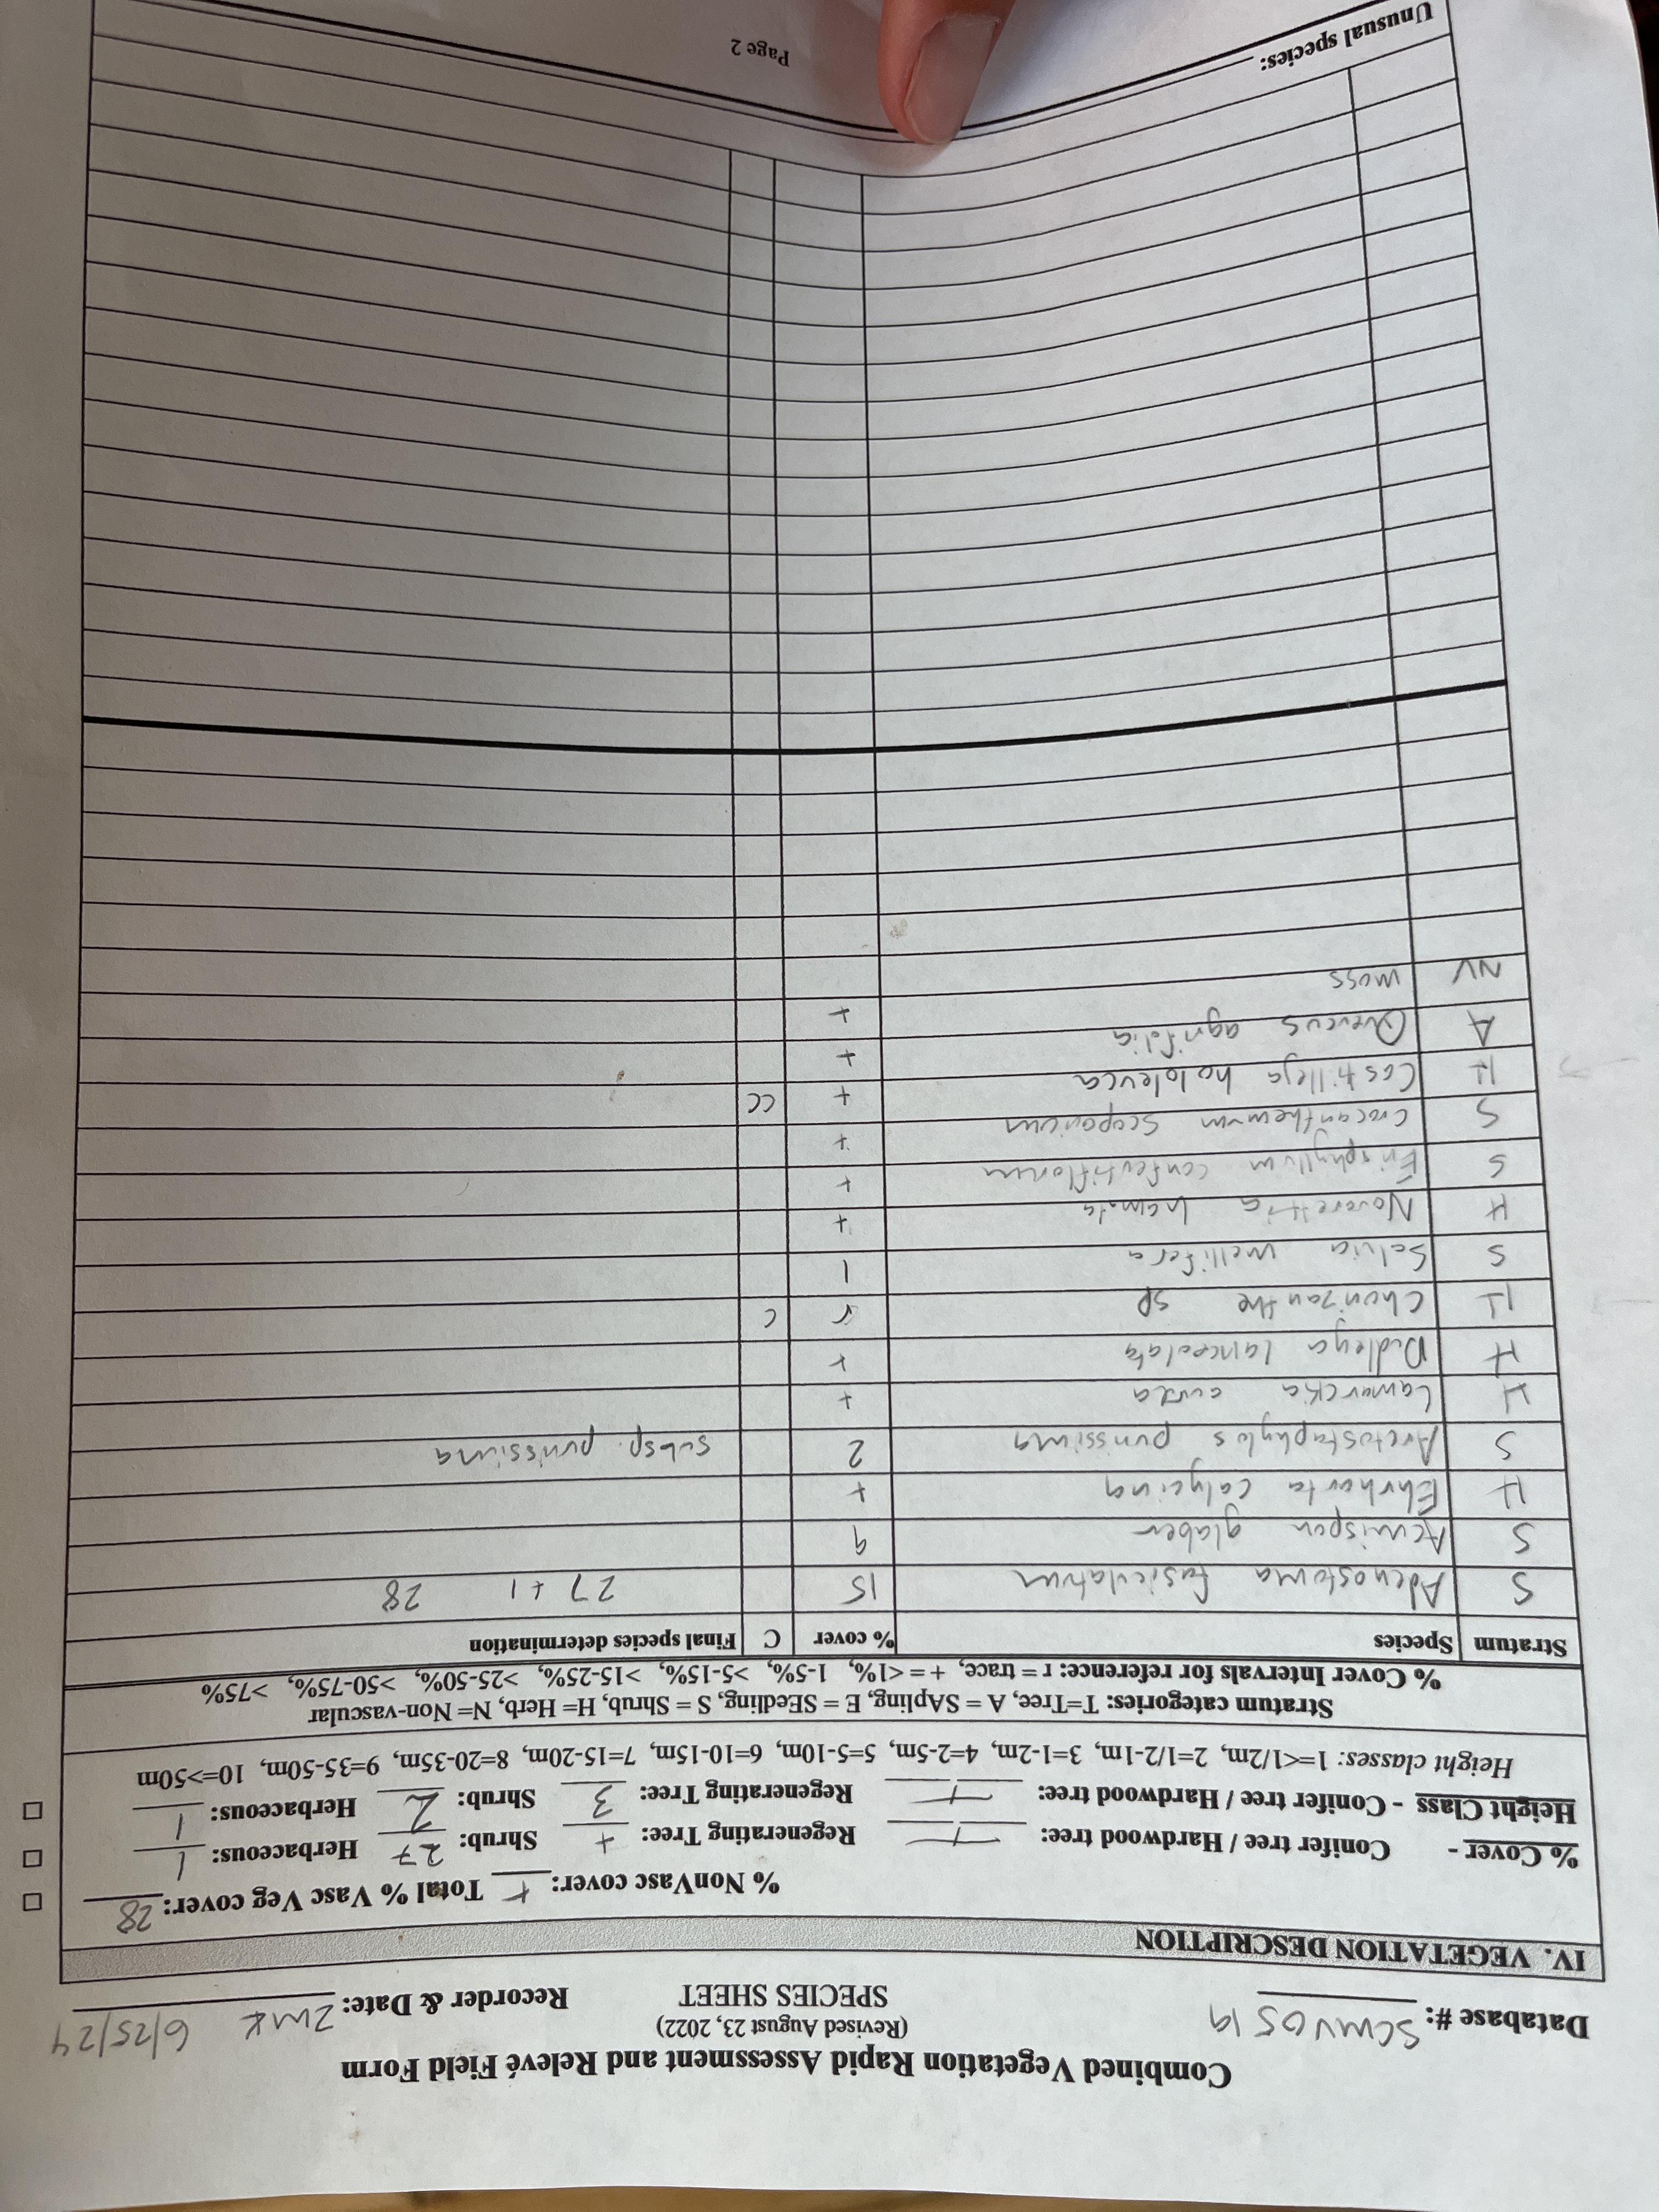 Combined Vegetation Rapid Assessment and Relevé Field Form
(Revised August 23, 2022)
Database #: SCMV0519 SPECIES SHEET Recorder & Date: ZMK 6/25/24
IV. VEGETATION DESCRIPTION
% NonVasc cover: + Total % Vasc Veg cover: 28
% Cover - Conifer tree / Hardwood tree: Regenerating Tree: + Shrub: 27 Herbaceous: 1
Height Class - Conifer tree / Hardwood tree: Regenerating Tree: 3 Shrub: 2 Herbaceous: 1
Height classes: 1=<1/2m, 2=1/2-1m, 3=1-2m, 4=2-5m, 5=5-10m, 6=10-15m, 7=15-20m, 8=20-35m, 9=35-50m, 10=>50m
Stratum categories: T=Tree, A = SApling, E = SEedling, S = Shrub, H= Herb, N= Non-vascular
% Cover Intervals for reference: r = trace, + = <1%, 1-5%, >5-15%, >15-25%, >25-50%, >50-75%, >75%
Stratum Species % cover C Final species determination
S Adenostoma fasiculatum 15 27 + 1 28
S Acmispon glaber 9
H Ehrharta calycina +
S Arctostaphylos purissima 2 subsp. purissima
H Lamarckia aurea +
H Dudleya lanceolata +
H Chorizanthe sp r C
S Salvia mellifera 1
H Navarettia hamata +
S Eriophyllum confertiflorum +
S Crocanthemum scoparium +
H Castilleja hololeuca + CC
A Quercus agrifolia +
NV moss +
Unusual species:
Page 2